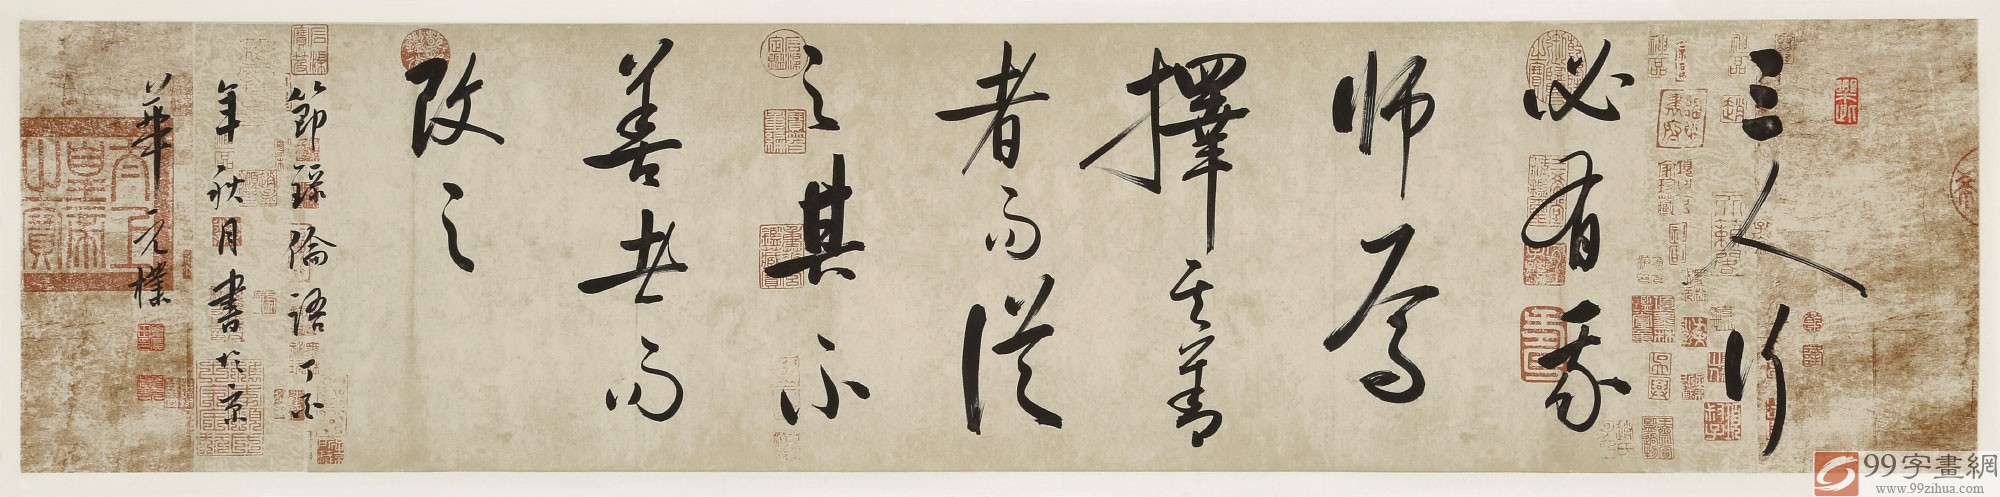 三人行
必有我
师焉
擇其善
者而從
之其不
善者而
改之
節録論語丁酉
年秋月書於京
華元樸
99字畫網
www.99zihua.com